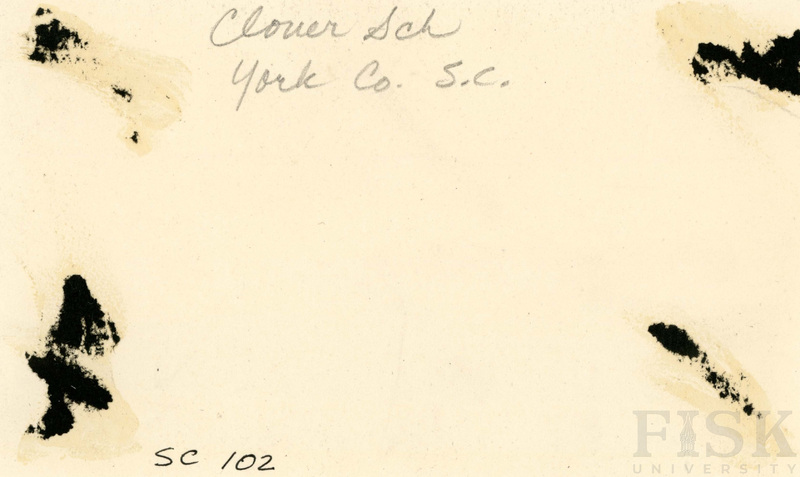 Clover Sch
York Co. S.C.
SC 102
FISK
UNIVERSITY